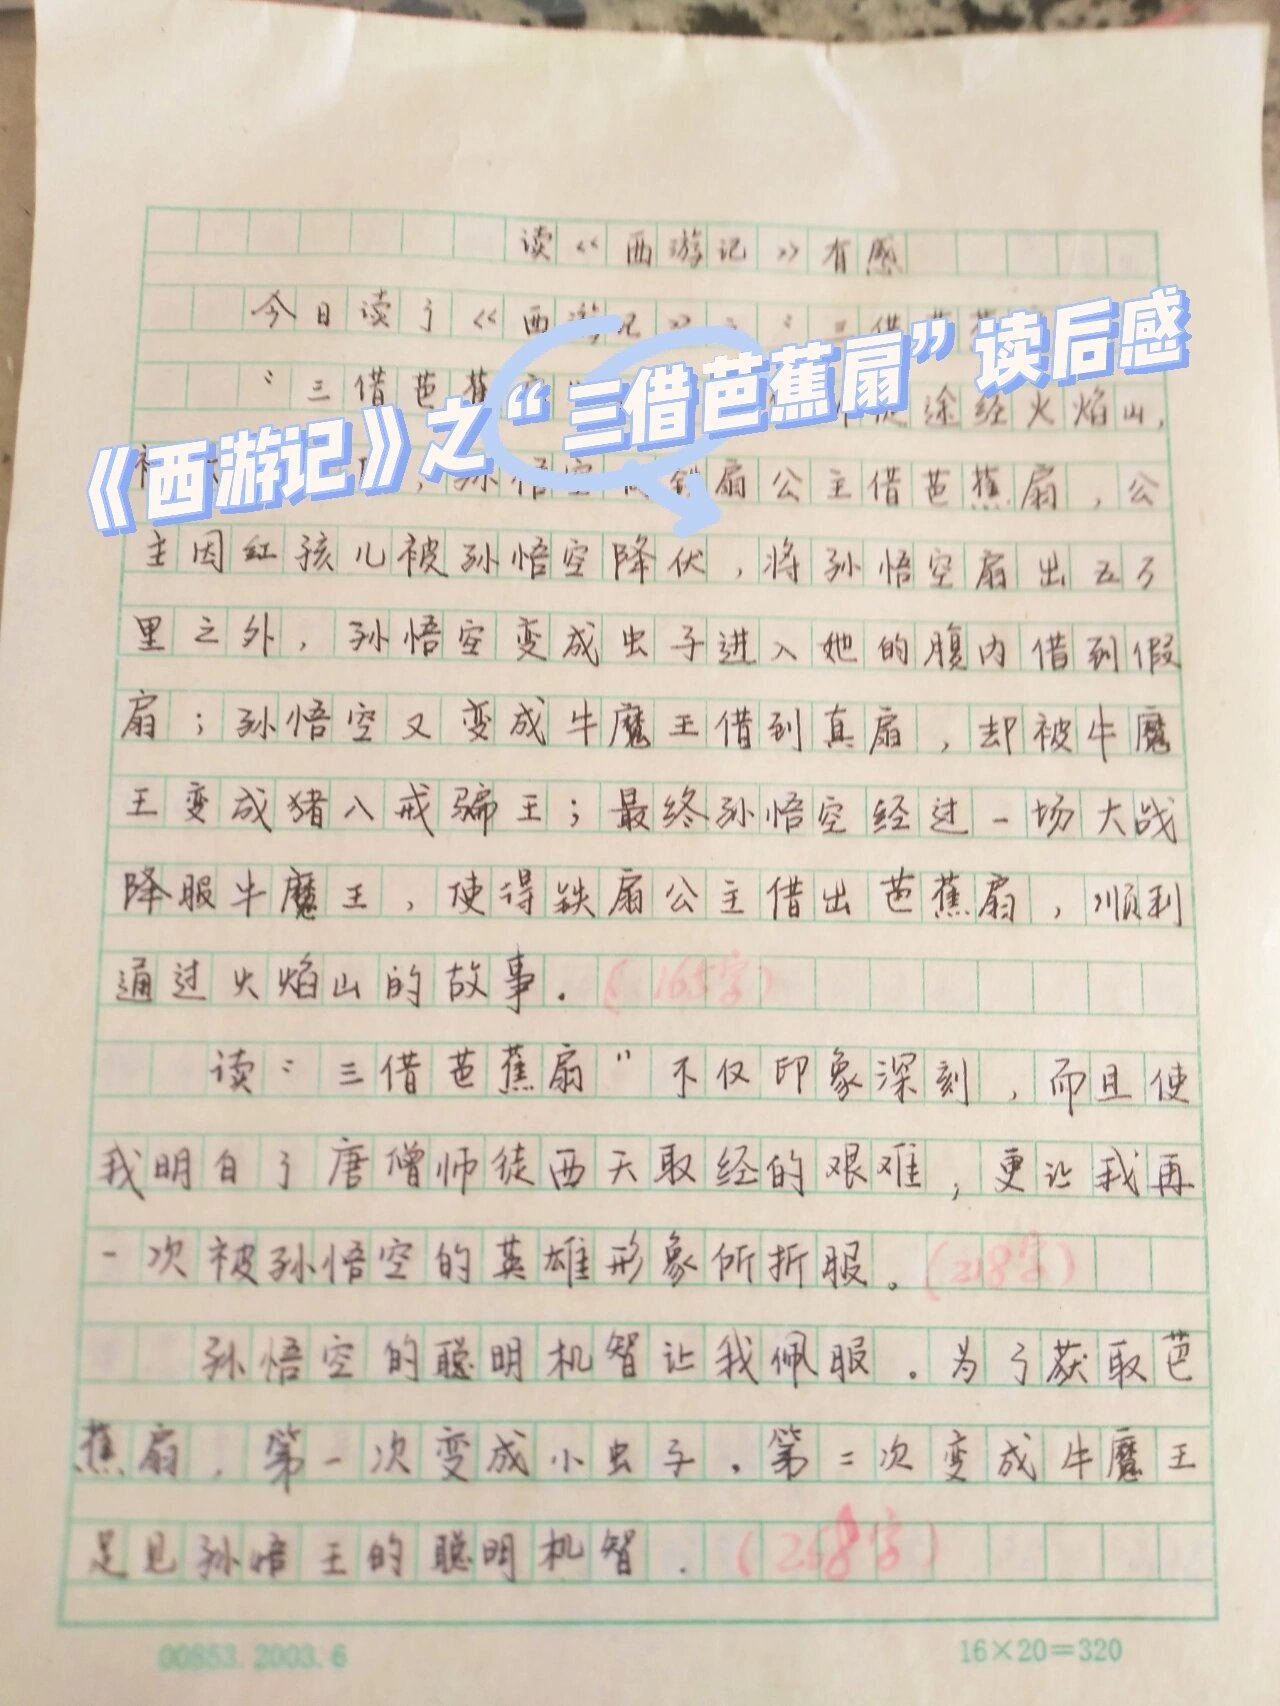 读《西游记》有感
今日读了《西游记》之“三借芭蕉
《西游记》之“三借芭蕉扇”读后感
“三借芭蕉 徒途经火焰山，
孙悟空 铁扇公主借芭蕉扇，公
主因红孩儿被孙悟空降伏，将孙悟空扇出五万
里之外，孙悟空变成虫子进入她的腹内借到假
扇；孙悟空又变成牛魔王借到真扇，却被牛魔
王变成猪八戒骗王；最终孙悟空经过一场大战
降服牛魔王，使得铁扇公主借出芭蕉扇，顺利
通过火焰山的故事.（165字）
读“三借芭蕉扇”不仅印象深刻，而且使
我明白了唐僧师徒西天取经的艰难，更让我再
一次被孙悟空的英雄形象所折服。（218字）
孙悟空的聪明机智让我佩服。为了获取芭
蕉扇，第一次变成小虫子.第二次变成牛魔王
足见孙悟王的聪明机智.（268字）
00853.2003.6
16×20=320